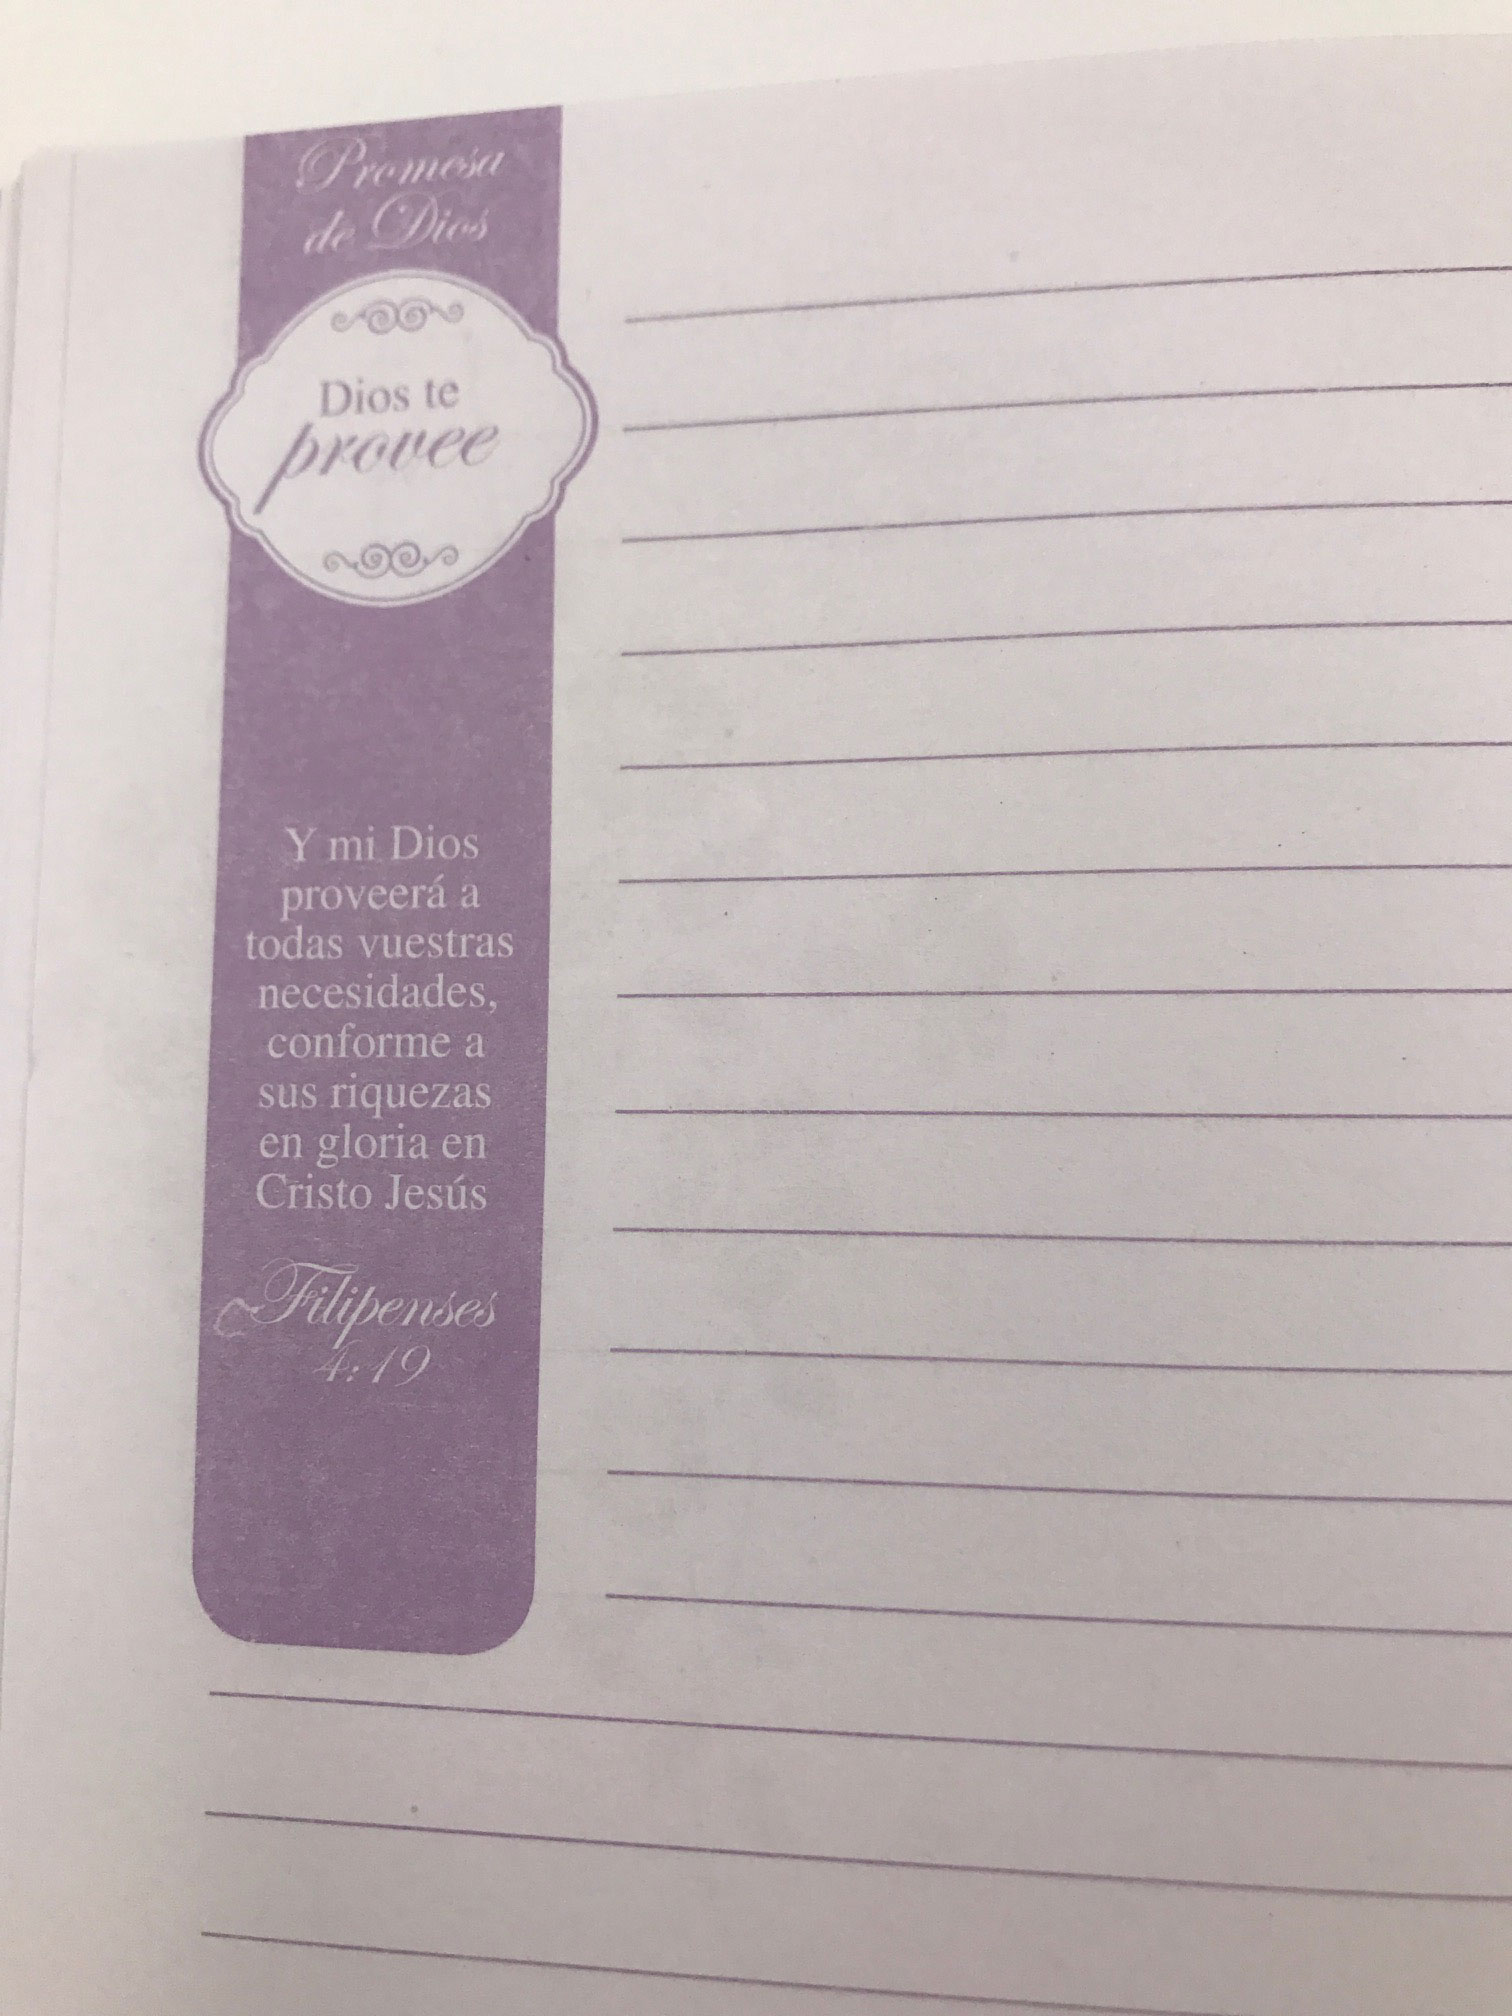 Promesa
de Dios
Dios te
provee
Y mi Dios
proveerá a
todas vuestras
necesidades,
conforme a
sus riquezas
en gloria en
Cristo Jesús
Filipenses
4:19